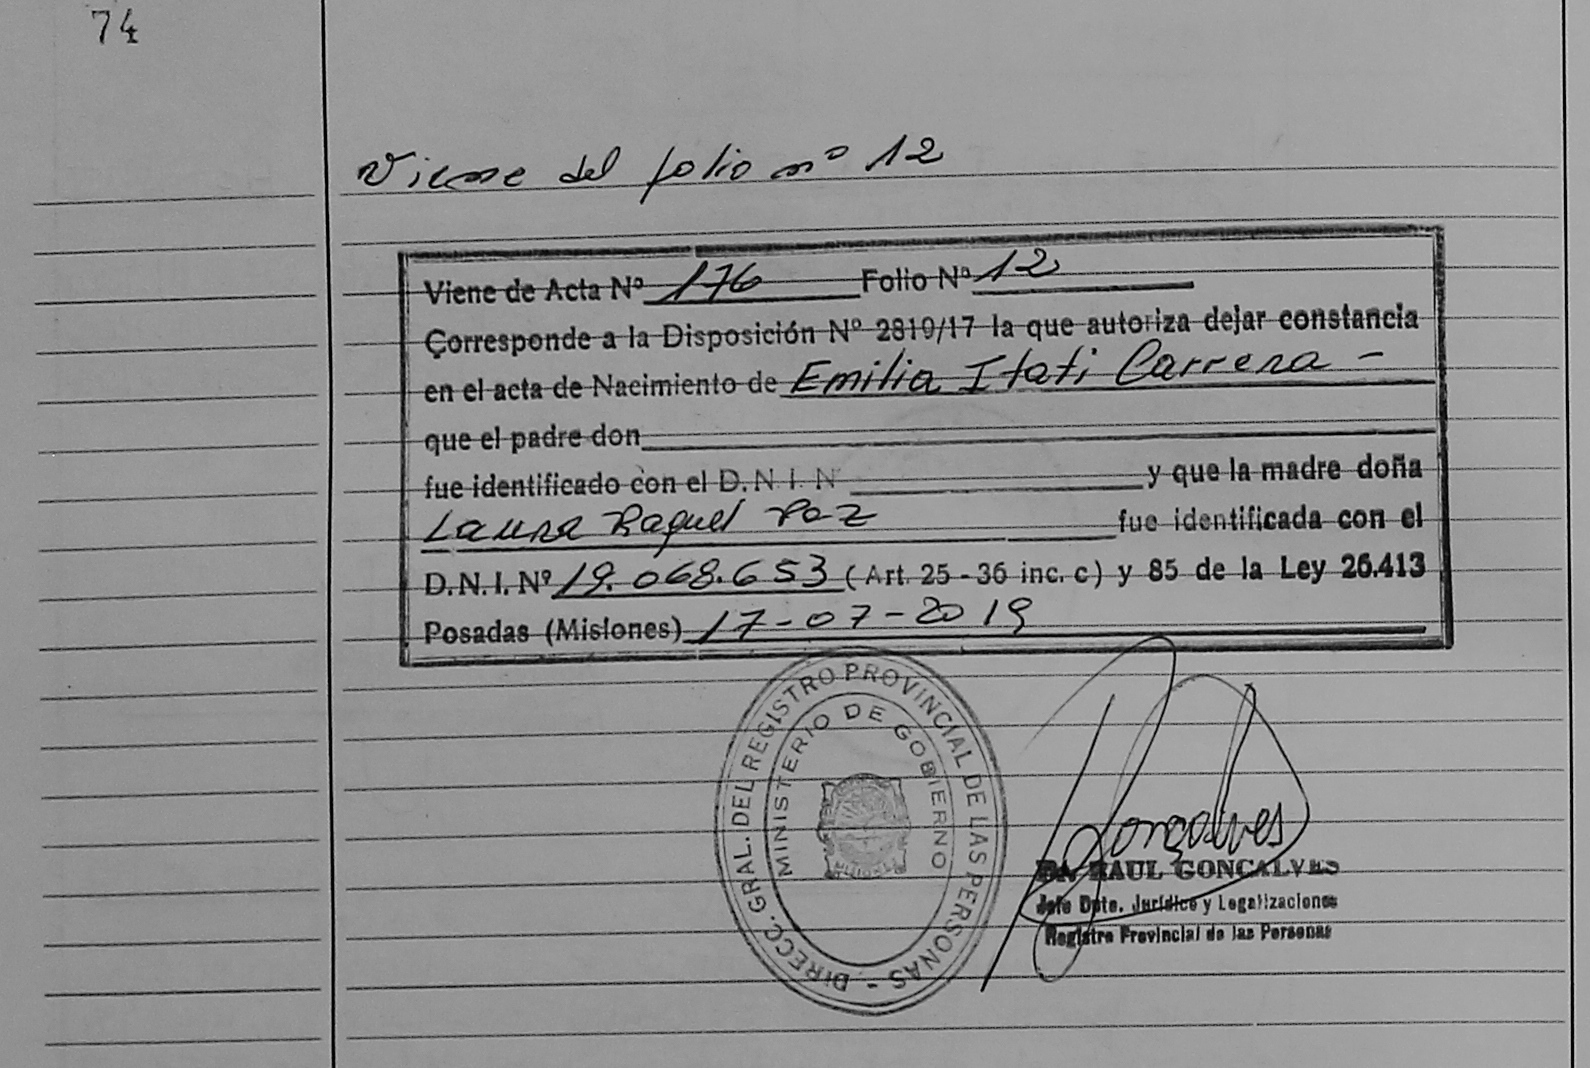 74
Viene del folio nº 12
Viene de Acta Nº 176 Folio Nº 12
Corresponde a la Disposición Nº 2810/17 la que autoriza dejar constancia
en el acta de Nacimiento de Emilia Itati Carrera -
que el padre don
fue identificado con el D.N.I. N y que la madre doña
Laura Raquel Paz fue identificada con el
D.N.I. Nº 19.068.653 (Art. 25 - 36 inc. c) y 85 de la Ley 26.413
Posadas (Misiones) 17-07-2019
DIRECC. GRAL. DEL REGISTRO PROVINCIAL DE LAS PERSONAS -
MINISTERIO DE GOBIERNO
Gonçalves
RAUL GONCALVES
Jefe Dpto. Jurídico y Legalizaciones
Registro Provincial de las Personas